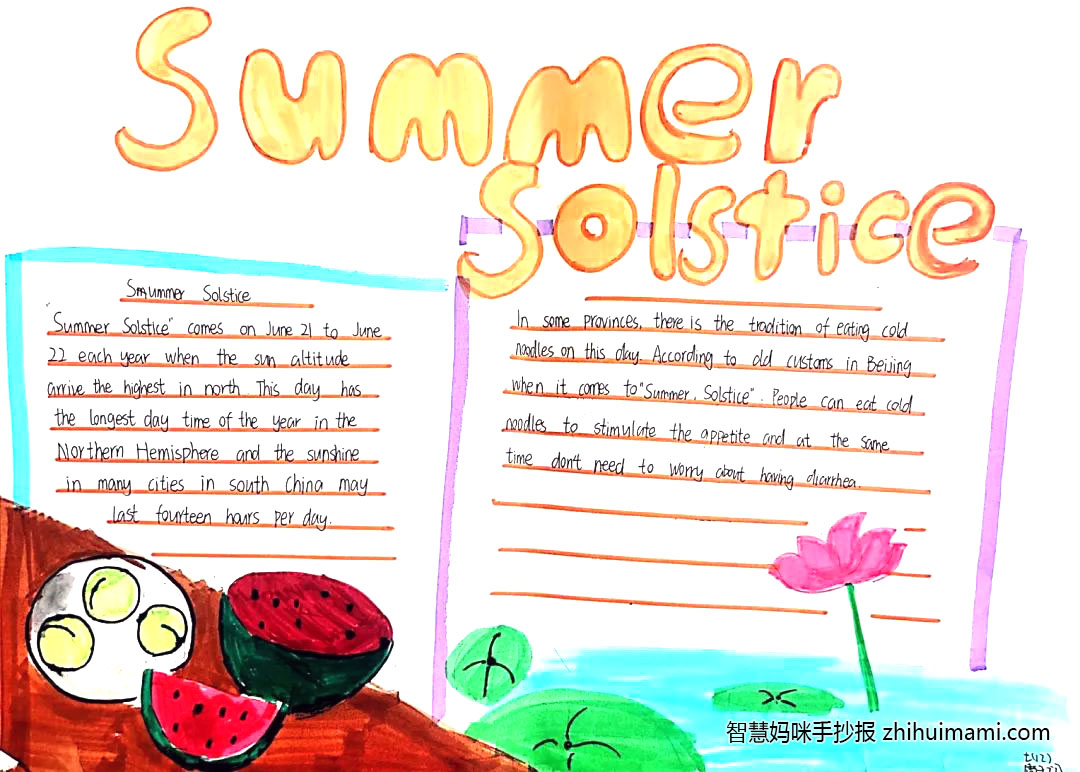 Summer
Solstice
Smummer Solstice
"Summer Solstice" comes on June 21 to June
22 each year when the sun altitude
arrive the highest in north. This day has
the longest day time of the year in the
Northern Hemisphere and the sunshine
in many cities in south China may
last fourteen hours per day.
In some provinces, there is the tradition of eating cold
noodles on this day. According to old customs in Beijing
when it comes to "Summer. Solstice". People can eat cold
noodles to stimulate the appetite and at the same
time don't need to worry about having diarrhea.
智慧妈咪手抄报 zhihuimami.com